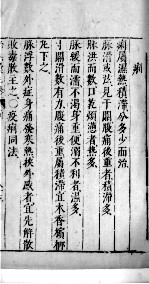 痢
痢屬濕熱積滯分多少而治
脉滑或弦見于關腹痛後重者積滯多
脉洪而數口乾煩懣者熱多
脉緩而濡不渴身重便溺不利者濕多
寸關滑數有力腹痛後重屬積滯宜木香檳榔
丸下之
脉浮數外症身痛發寒熱挾外感者宜先解散
敗毒散主之〇疫痢同法